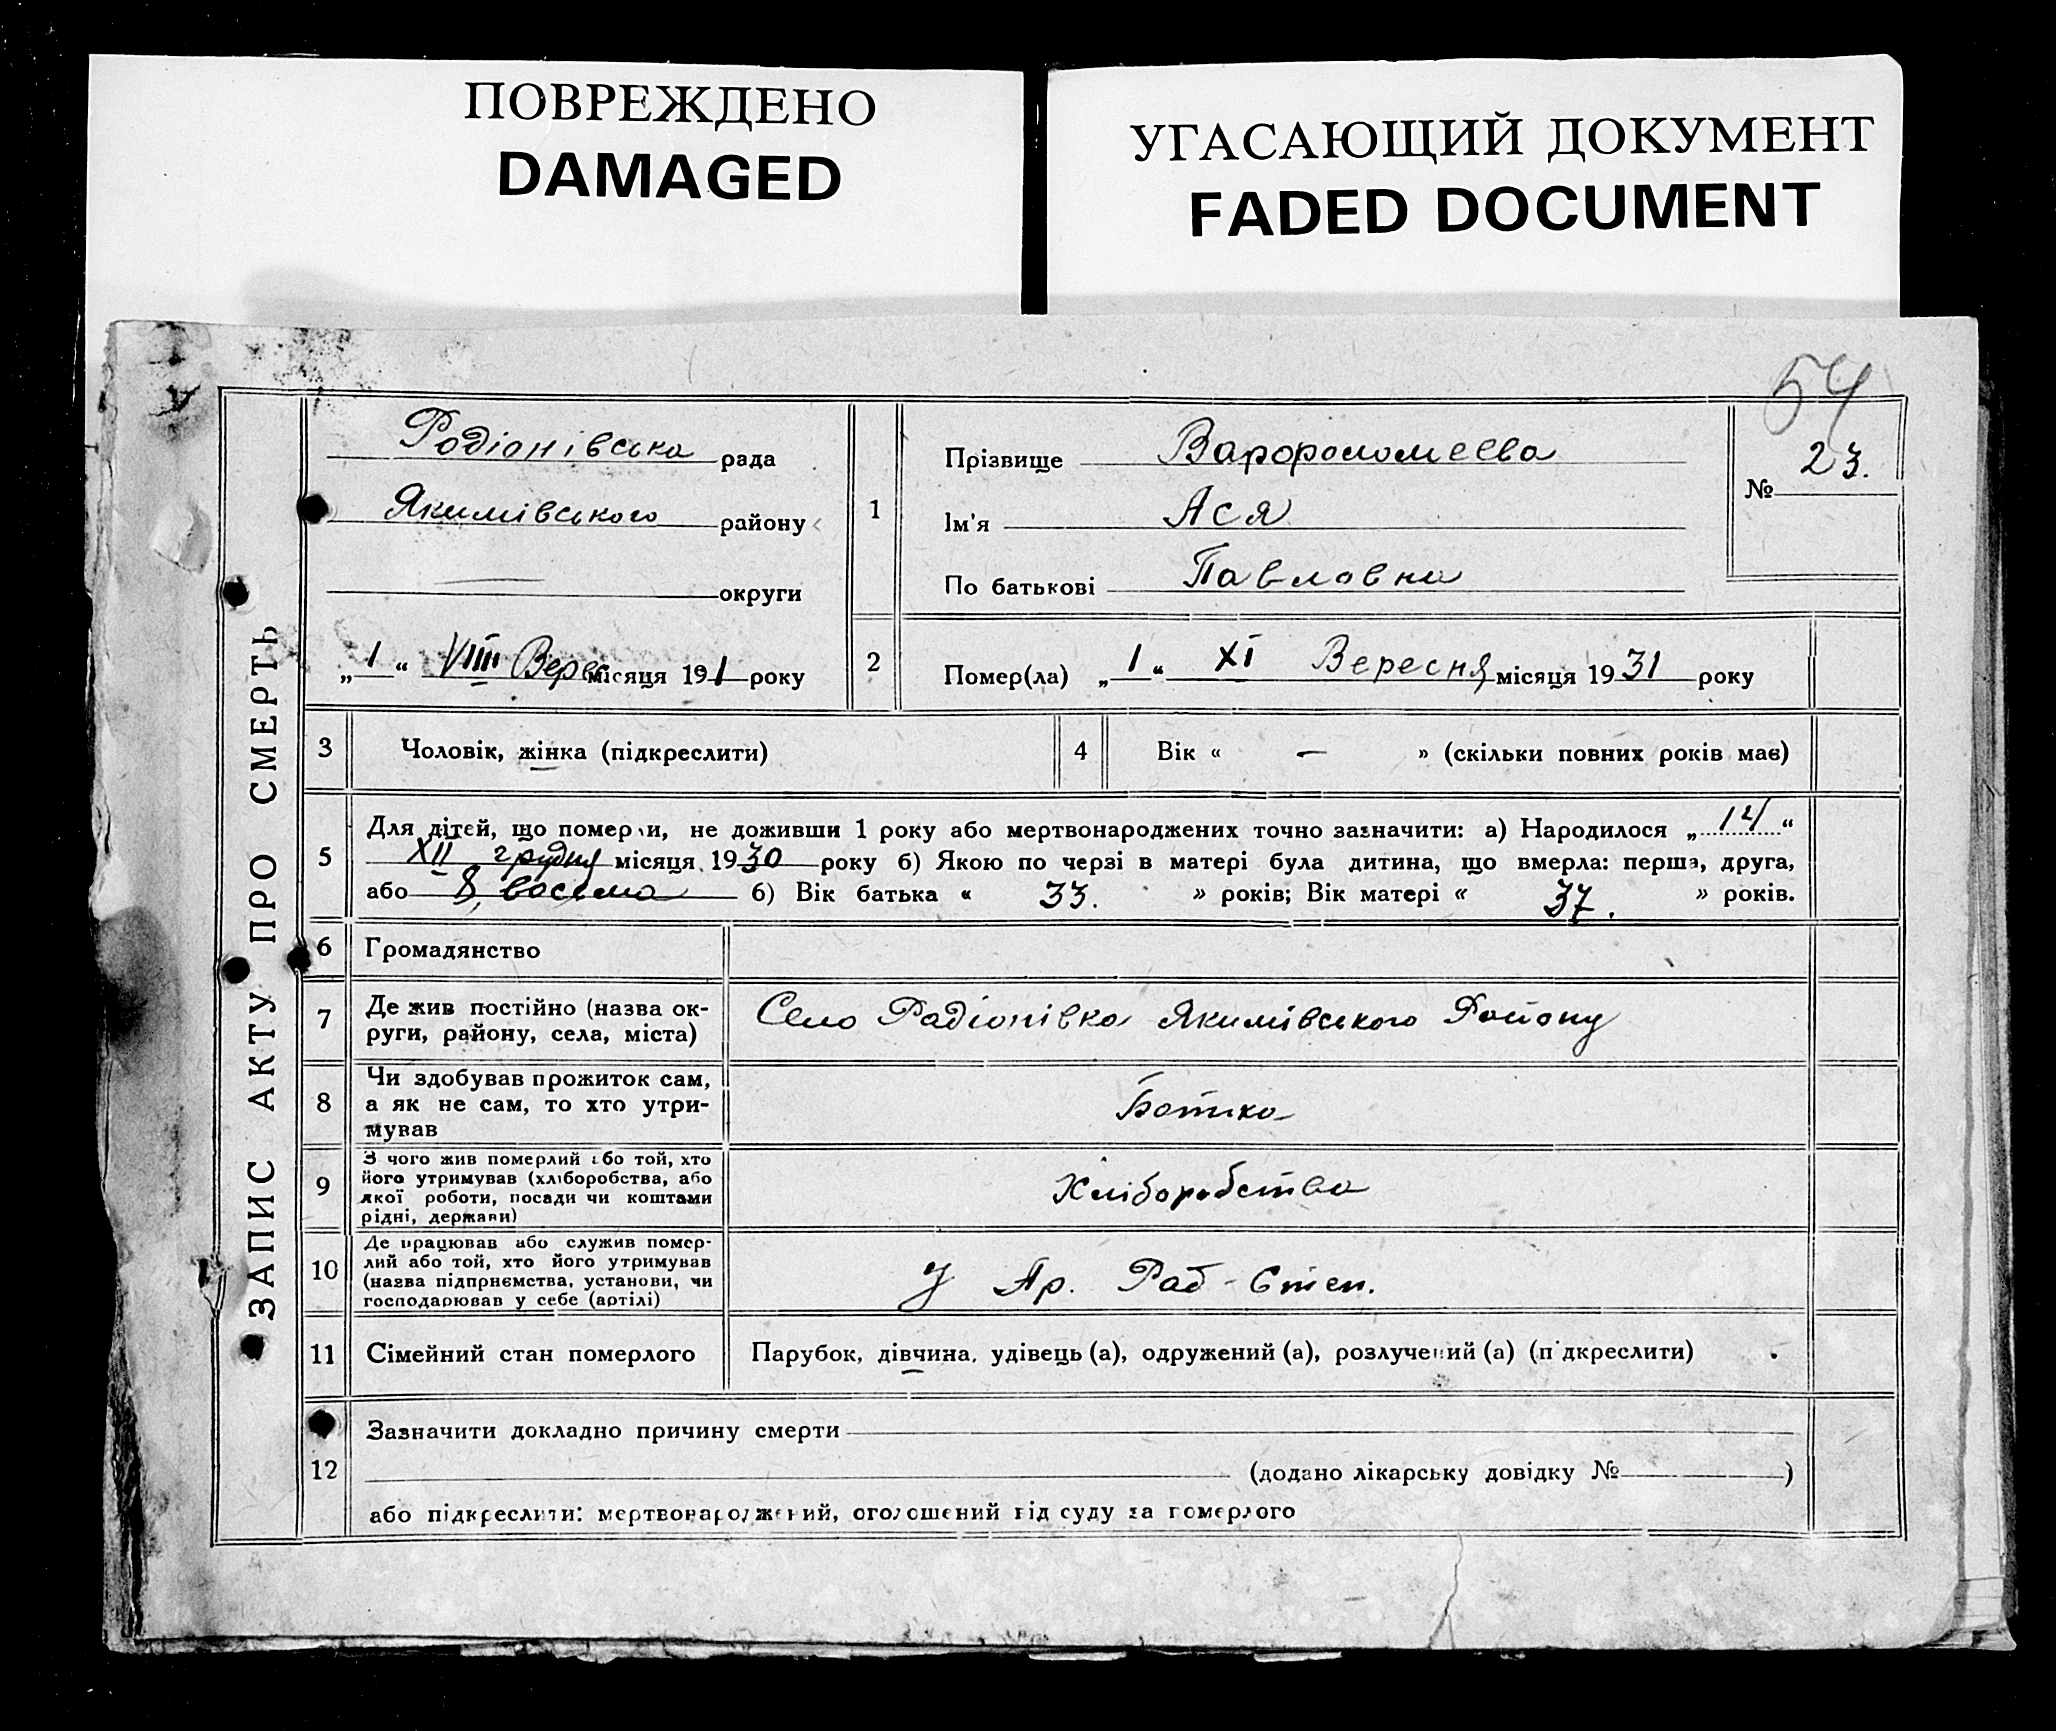 ПОВРЕЖДЕНО
DAMAGED
УГАСАЮЩИЙ ДОКУМЕНТ
FADED DOCUMENT
54
ЗАПИС АКТУ ПРО СМЕРТЬ
Родіонівська рада
Якимівського району
округи
„1“ VIII Верес місяця 191 року
1
Прізвище Варфоломеева
Ім'я Ася
По батькові Павловна
№ 23.
2
Помер(ла) „1“ XI Вересня місяця 1931 року
3 Чоловік, жінка (підкреслити)
4 Вік « — » (скільки повних років має)
5
Для дітей, що померли, не доживши 1 року або мертвонароджених точно зазначити: а) Народилося „14“
XII грудня місяця 1930 року б) Якою по черзі в матері була дитина, що вмерла: перша, друга,
або 8, восьма б) Вік батька « 33. » років; Вік матері « 37. » років.
6 Громадянство
7 Де жив постійно (назва ок-
руги, району, села, міста)
Село Радіонівка Якимівського Району
8 Чи здобував прожиток сам,
а як не сам, то хто утри-
мував
Батько
9 З чого жив померлий або той, хто
його утримував (хліборобства, або
якої роботи, посади чи коштами
рідні, держави)
Хліборобство
10 Де працював або служив помер-
лий або той, хто його утримував
(назва підприємства, установи, чи
господарював у себе (артілі)
У Ар. Раб-Степ.
11 Сімейний стан померлого
Парубок, дівчина, удівець (а), одружений (а), розлучений (а) (підкреслити)
12
Зазначити докладно причину смерти
(додано лікарську довідку № )
або підкреслити: мертвонароджений, оголошений від суду за померлого